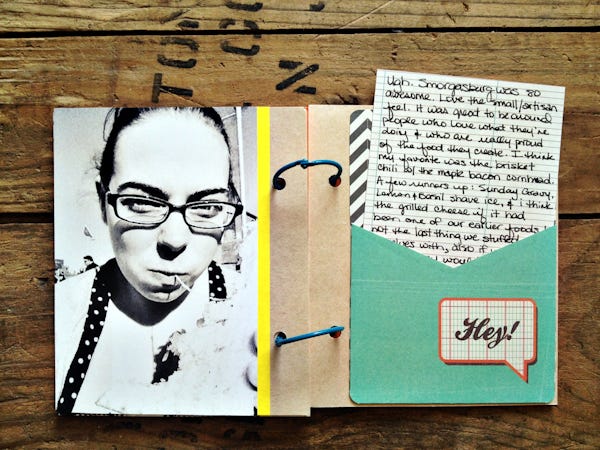 Ugh. Smorgasburg was so
awesome. Love the small/artisan
feel. It was great to be around
people who love what they're
doing & who are really proud
of the food they create. I think
my favorite was the brisket
chili w/ the maple bacon cornbread.
A few runners up: Sunday Gravy,
Lemon & basil shave ice, & I think
the grilled cheese if it had
been one of our earlier foods
not the last thing we stuffed
with, also if
would
Hey!